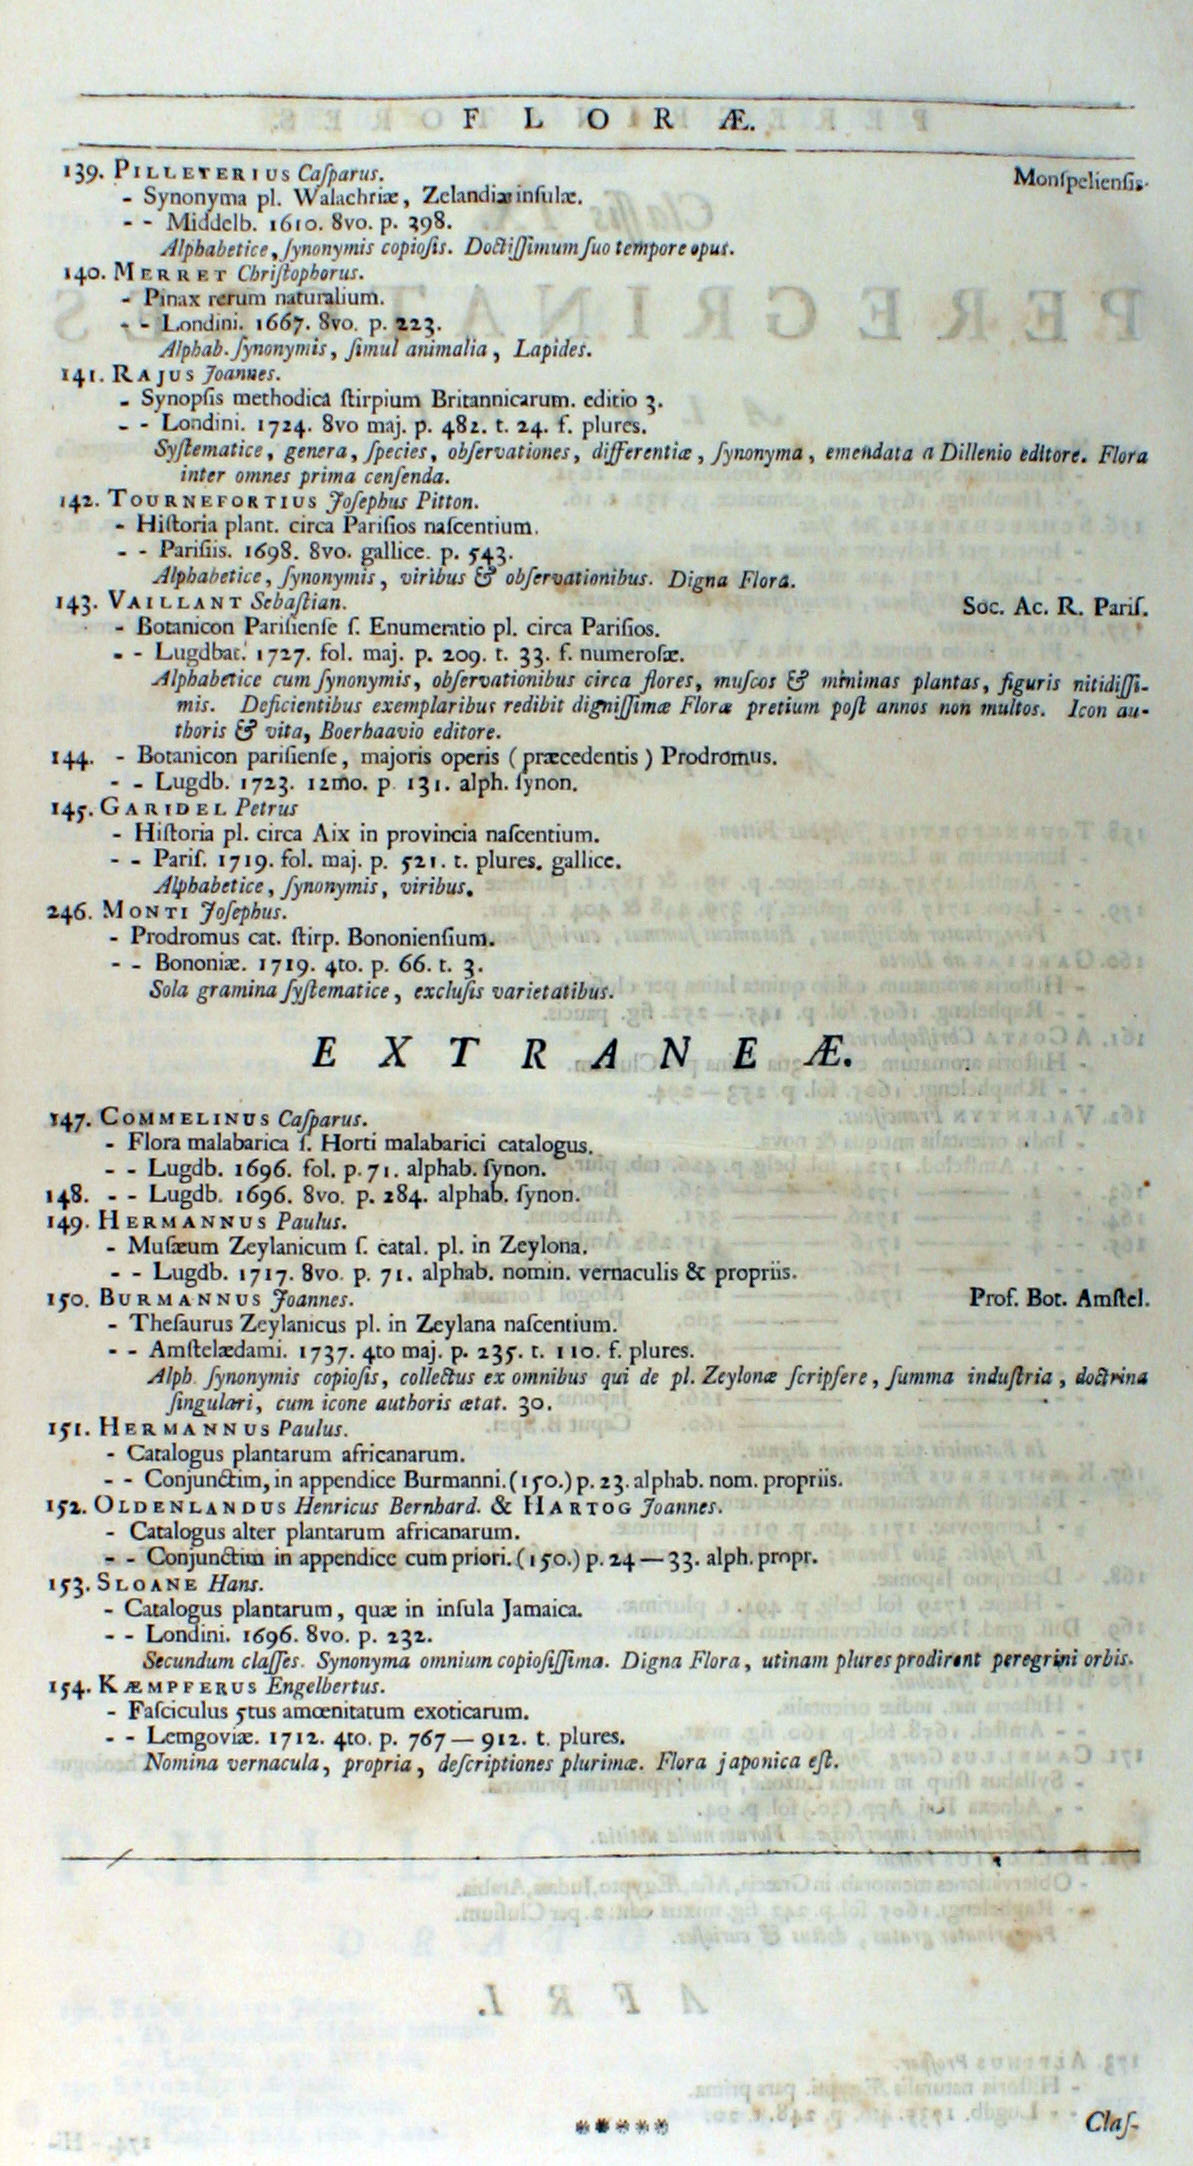 FLORÆ.
139. PILLETERIUS Caſparus. Monſpelienſis.
- Synonyma pl. Walachriæ, Zelandiæ inſulæ.
- - Middelb. 1610. 8vo. p. 398.
Alphabetice, ſynonymis copioſis. Doctiſſimum ſuo tempore opus.
140. MERRET Chriſtophorus.
- Pinax rerum naturalium.
- - Londini. 1667. 8vo. p. 223.
Alphab. ſynonymis, ſimul animalia, Lapides.
141. RAJUS Joannes.
- Synopſis methodica ſtirpium Britannicarum. editio 3.
- - Londini. 1724. 8vo maj. p. 482. t. 24. f. plures.
Syſtematice, genera, ſpecies, obſervationes, differentiæ, ſynonyma, emendata a Dillenio editore. Flora
inter omnes prima cenſenda.
142. TOURNEFORTIUS Joſephus Pitton.
- Hiſtoria plant. circa Pariſios naſcentium.
- - Pariſiis. 1698. 8vo. gallice. p. 543.
Alphabetice, ſynonymis, viribus & obſervationibus. Digna Flora.
143. VAILLANT Sebaſtian. Soc. Ac. R. Pariſ.
- Botanicon Pariſienſe ſ. Enumeratio pl. circa Pariſios.
- - Lugdbat. 1727. fol. maj. p. 209. t. 33. f. numeroſæ.
Alphabetice cum ſynonymis, obſervationibus circa flores, muſcos & minimas plantas, figuris nitidiſſi-
mis. Deficientibus exemplaribus redibit digniſſimæ Floræ pretium poſt annos non multos. Icon au-
thoris & vita, Boerhaavio editore.
144. - Botanicon pariſienſe, majoris operis (præcedentis) Prodromus.
- - Lugdb. 1723. 12mo. p. 131. alph. ſynon.
145. GARIDEL Petrus
- Hiſtoria pl. circa Aix in provincia naſcentium.
- - Pariſ. 1719. fol. maj. p. 521. t. plures. gallice.
Alphabetice, ſynonymis, viribus.
246. MONTI Joſephus.
- Prodromus cat. ſtirp. Bononienſium.
- - Bononiæ. 1719. 4to. p. 66. t. 3.
Sola gramina ſyſtematice, excluſis varietatibus.
EXTRANEÆ.
147. COMMELINUS Caſparus.
- Flora malabarica ſ. Horti malabarici catalogus.
- - Lugdb. 1696. fol. p. 71. alphab. ſynon.
148. - - Lugdb. 1696. 8vo. p. 284. alphab. ſynon.
149. HERMANNUS Paulus.
- Muſæum Zeylanicum ſ. catal. pl. in Zeylona.
- - Lugdb. 1717. 8vo. p. 71. alphab. nomin. vernaculis & propriis.
150. BURMANNUS Joannes. Prof. Bot. Amſtel.
- Theſaurus Zeylanicus pl. in Zeylana naſcentium.
- - Amſtelædami. 1737. 4to maj. p. 235. t. 110. f. plures.
Alph. ſynonymis copioſis, collectus ex omnibus qui de pl. Zeylonæ ſcripſere, ſumma induſtria, doctrina
ſingulari, cum icone authoris ætat. 30.
151. HERMANNUS Paulus.
- Catalogus plantarum africanarum.
- - Conjunctim, in appendice Burmanni. (150.) p. 23. alphab. nom. propriis.
152. OLDENLANDUS Henricus Bernhard. & HARTOG Joannes.
- Catalogus alter plantarum africanarum.
- - Conjunctim in appendice cum priori. (150.) p. 24—33. alph. propr.
153. SLOANE Hans.
- Catalogus plantarum, quæ in inſula Jamaica.
- - Londini. 1696. 8vo. p. 232.
Secundum claſſes. Synonyma omnium copioſiſſima. Digna Flora, utinam plures prodirent peregrini orbis.
154. KÆMPFERUS Engelbertus.
- Faſciculus 5tus amœnitatum exoticarum.
- - Lemgoviæ. 1712. 4to. p. 767—912. t. plures.
Nomina vernacula, propria, deſcriptiones plurimæ. Flora japonica eſt.
***** Claſ-